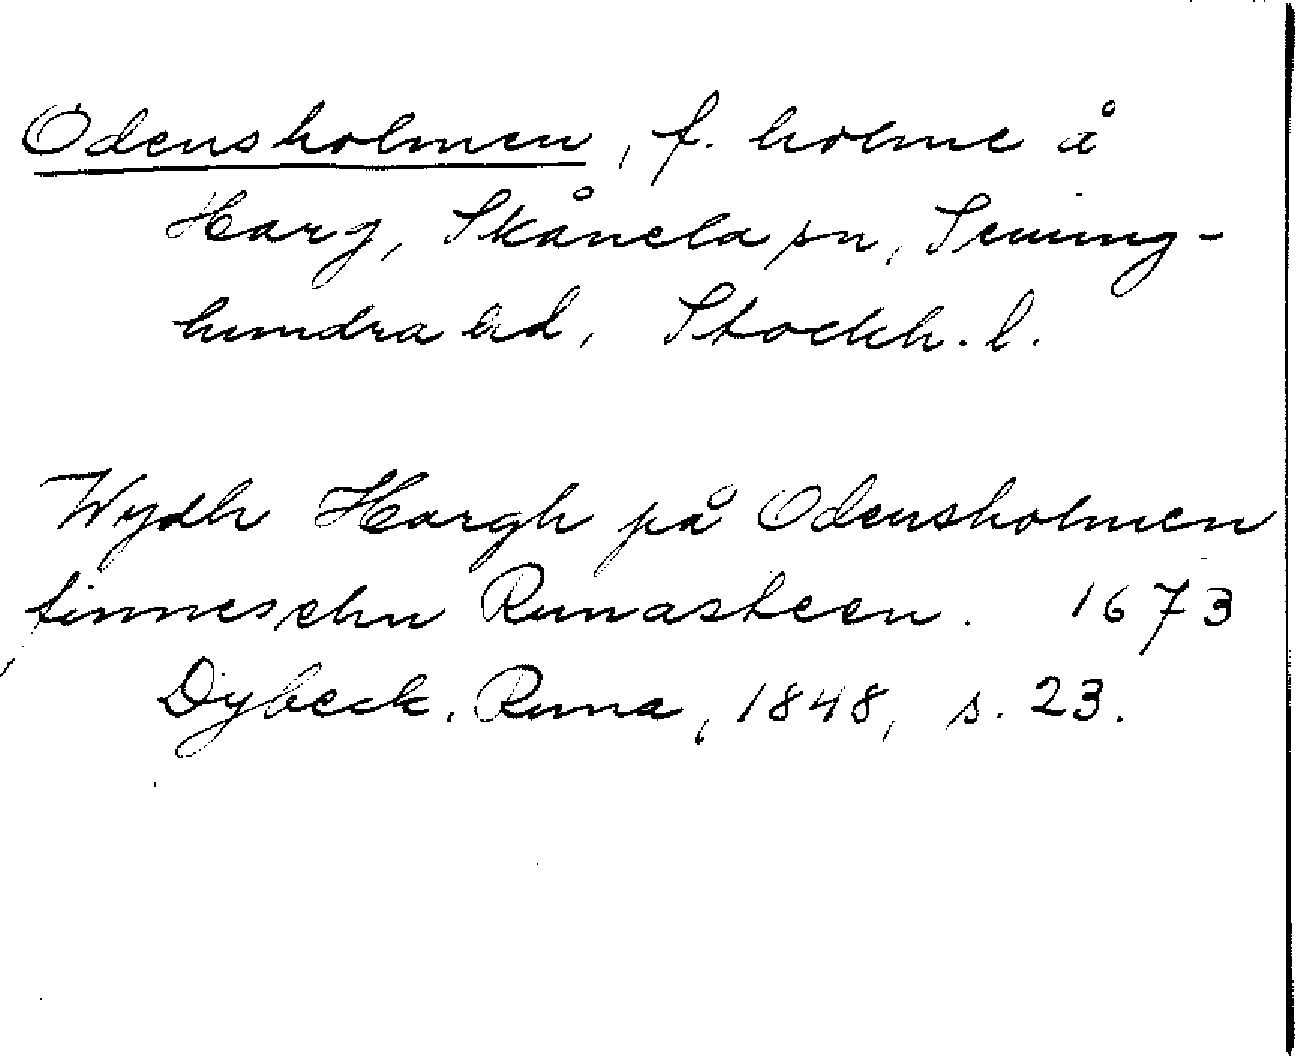 Odensholmen, f. holme å
Harg, Skånela sn, Seming-
hundra hd, Stockh. l.
Wydh Hargh på Odensholmen
finnes ehn Runasteen. 1673
Dybeck. Runa, 1848, s. 23.